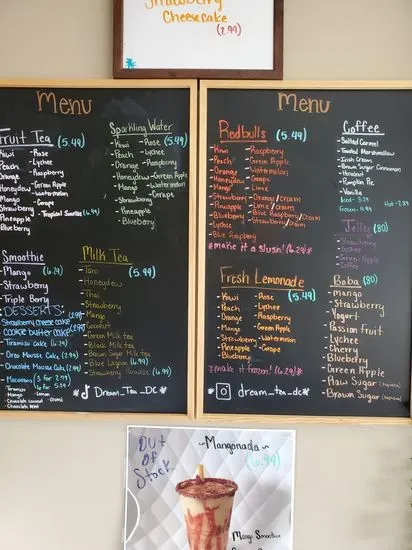 Strawberry
Cheesecake
(2.99)
Menu
Fruit Tea (5.49)
Kiwi - Rose
Peach - Lychee
Orange - Raspberry
Honeydew - Green Apple
Mango - Watermelon
Strawberry - Grape
Pineapple - Tropical Sunrise (6.49)
Blueberry
Sparkling Water
- Kiwi - Rose (5.49)
- Peach - Lychee
- Orange - Raspberry
- Honeydew - Green Apple
- Mango - Watermelon
- Strawberry - Grape
- Pineapple
- Blueberry
Smoothie
- Mango (6.29)
- Strawberry
- Triple Berry
DESSERTS:
Strawberry cheese cake (2.99)
cookie butter cake (2.99)
Tiramisu Cake (6.29)
Oreo Mousse Cake (2.99)
Chocolate Mousse Cake (2.99)
Macarons 3 for 2.99
6 for 5.29
- Tiramisu
- Mango - Lemon
- Chocolate coconut
- Chocolate mint
Milk Tea
- Taro (5.99)
- Honeydew
- Thai
- Strawberry
- Mango
- Coconut
- Green Milk tea
- Black Milk tea
- Brown Sugar Milk tea
- Blue Lagoon (6.49)
- Strawberry Paradise (6.99)
* Dream_Tea_DC *
Menu
Redbulls (5.49)
- Kiwi - Raspberry
- Peach - Green Apple
- Orange - Watermelon
- Honeydew - Grape
- Mango - Lime
- Strawberry - Orange/cream
- Pineapple - Lime/cream
- Blueberry - Blue Raspberry/cream
- Lychee - Strawberry/cream
- Blue Raspberry
*make it a slush! (6.29)*
Fresh Lemonade
- Kiwi - Rose (5.49)
- Peach - Lychee
- Orange - Raspberry
- Mango - Green Apple
- Strawberry - Watermelon
- Pineapple - Grape
- Blueberry
*make it frozen! (6.29)*
* dream_tea_dc *
Coffee
- Salted Caramel
- Toasted Marshmallow
- Irish Cream
- Brown Sugar Cinnamon
- Hazelnut
- Pumpkin Pie
- Vanilla
Iced - 3.29 Hot - 2.89
Frozen - 4.99
Jelly (80)
- Strawberry
- Lychee
- Green Apple
- Coffee
Boba (80)
- mango
- Strawberry
- Yogurt
- Passion Fruit
- Lychee
- Cherry
- Blueberry
- Green Apple
- Raw Sugar (tapioca)
- Brown Sugar (tapioca)
Out
of
Stock
~Mangonada~
(6.99)
Mango Smoothie